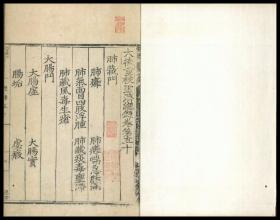 大德重校聖濟總錄卷第五十
肺藏門
肺癰　肺癰喘急
肺氣面目四肢浮腫　肺藏痰毒壅滯
肺藏風毒生瘡
大腸門
大腸虛　大腸實
腸垢